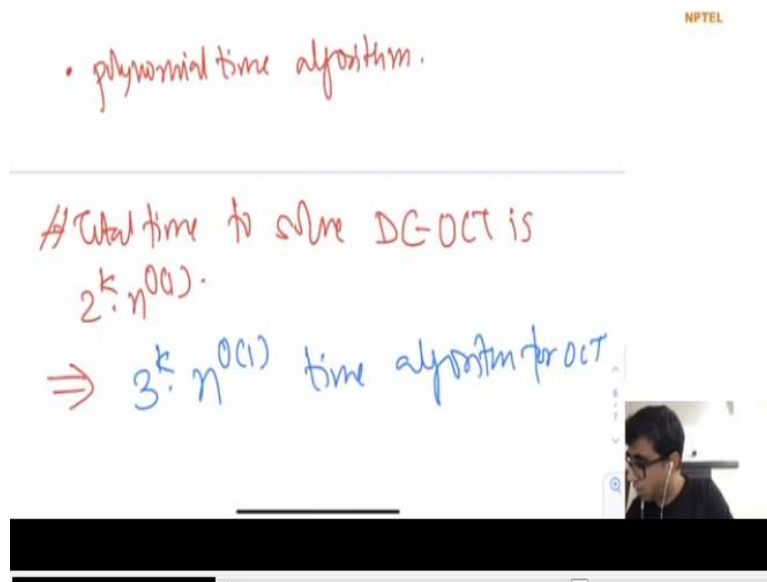 NPTEL
• polynomial time algorithm.
# Total time to solve DC-OCT is
2^k · n^O(1).
⇒ 3^k · n^O(1) time algorithm for OCT